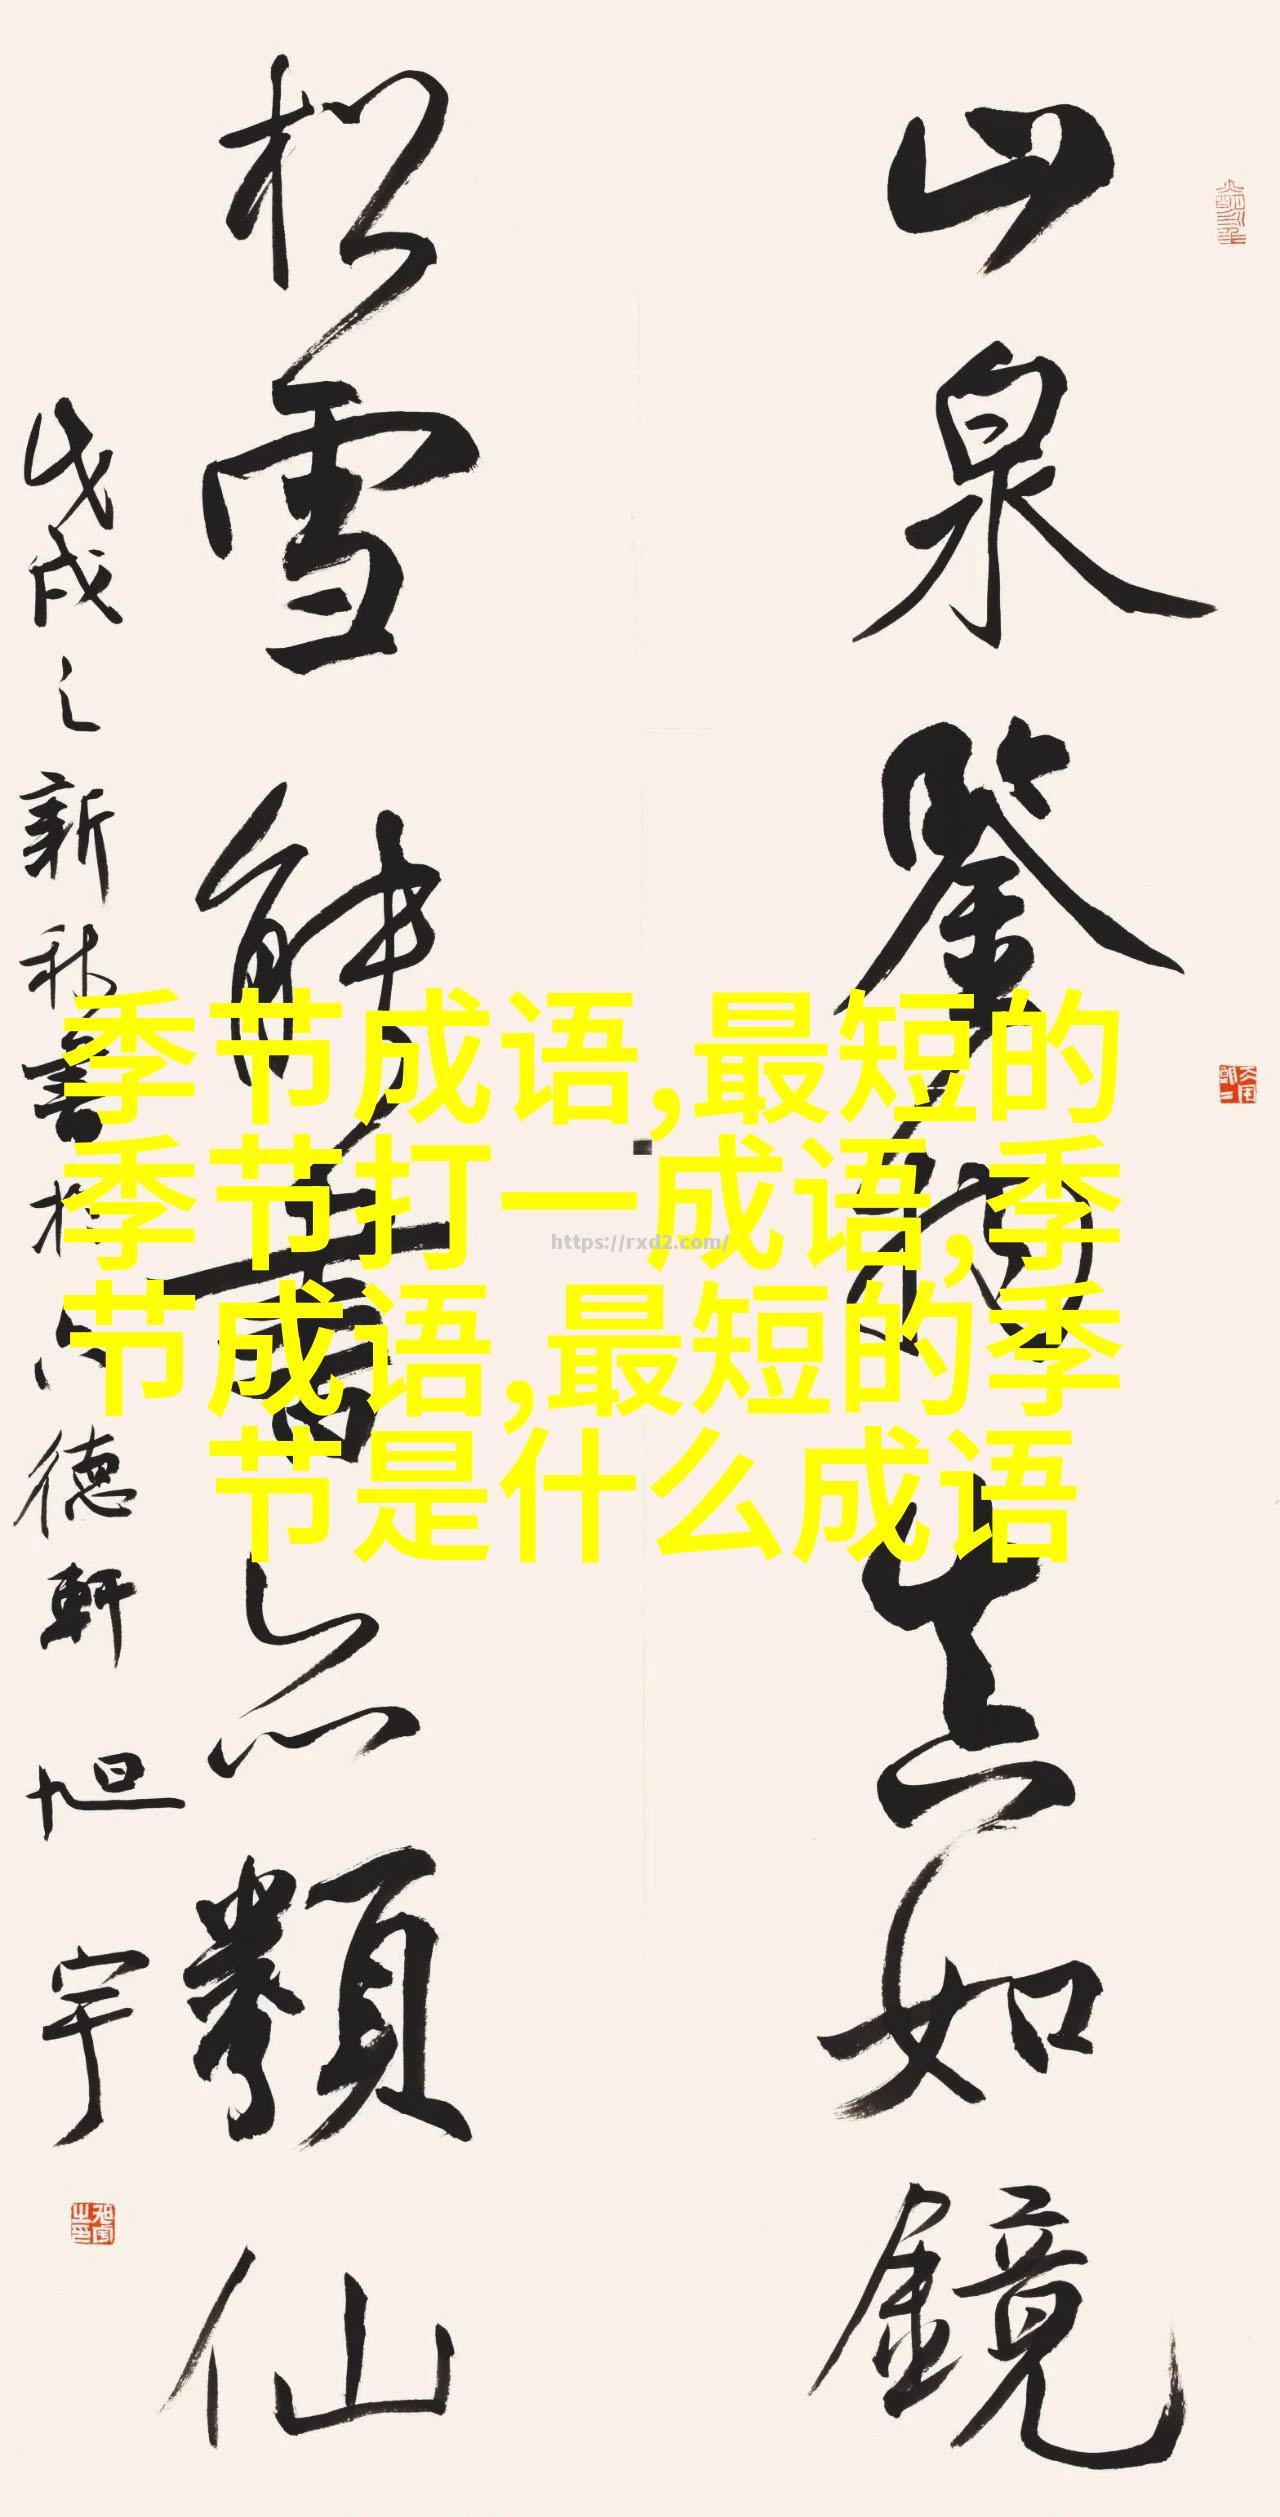 山泉鑒物真如鏡
松雪能書亦類仙
戊戌之新秋書於
德軒 旭宇
季节成语,最短的
季节打一成语,季
节成语,最短的季
节是什么成语
https://rxd2.com/